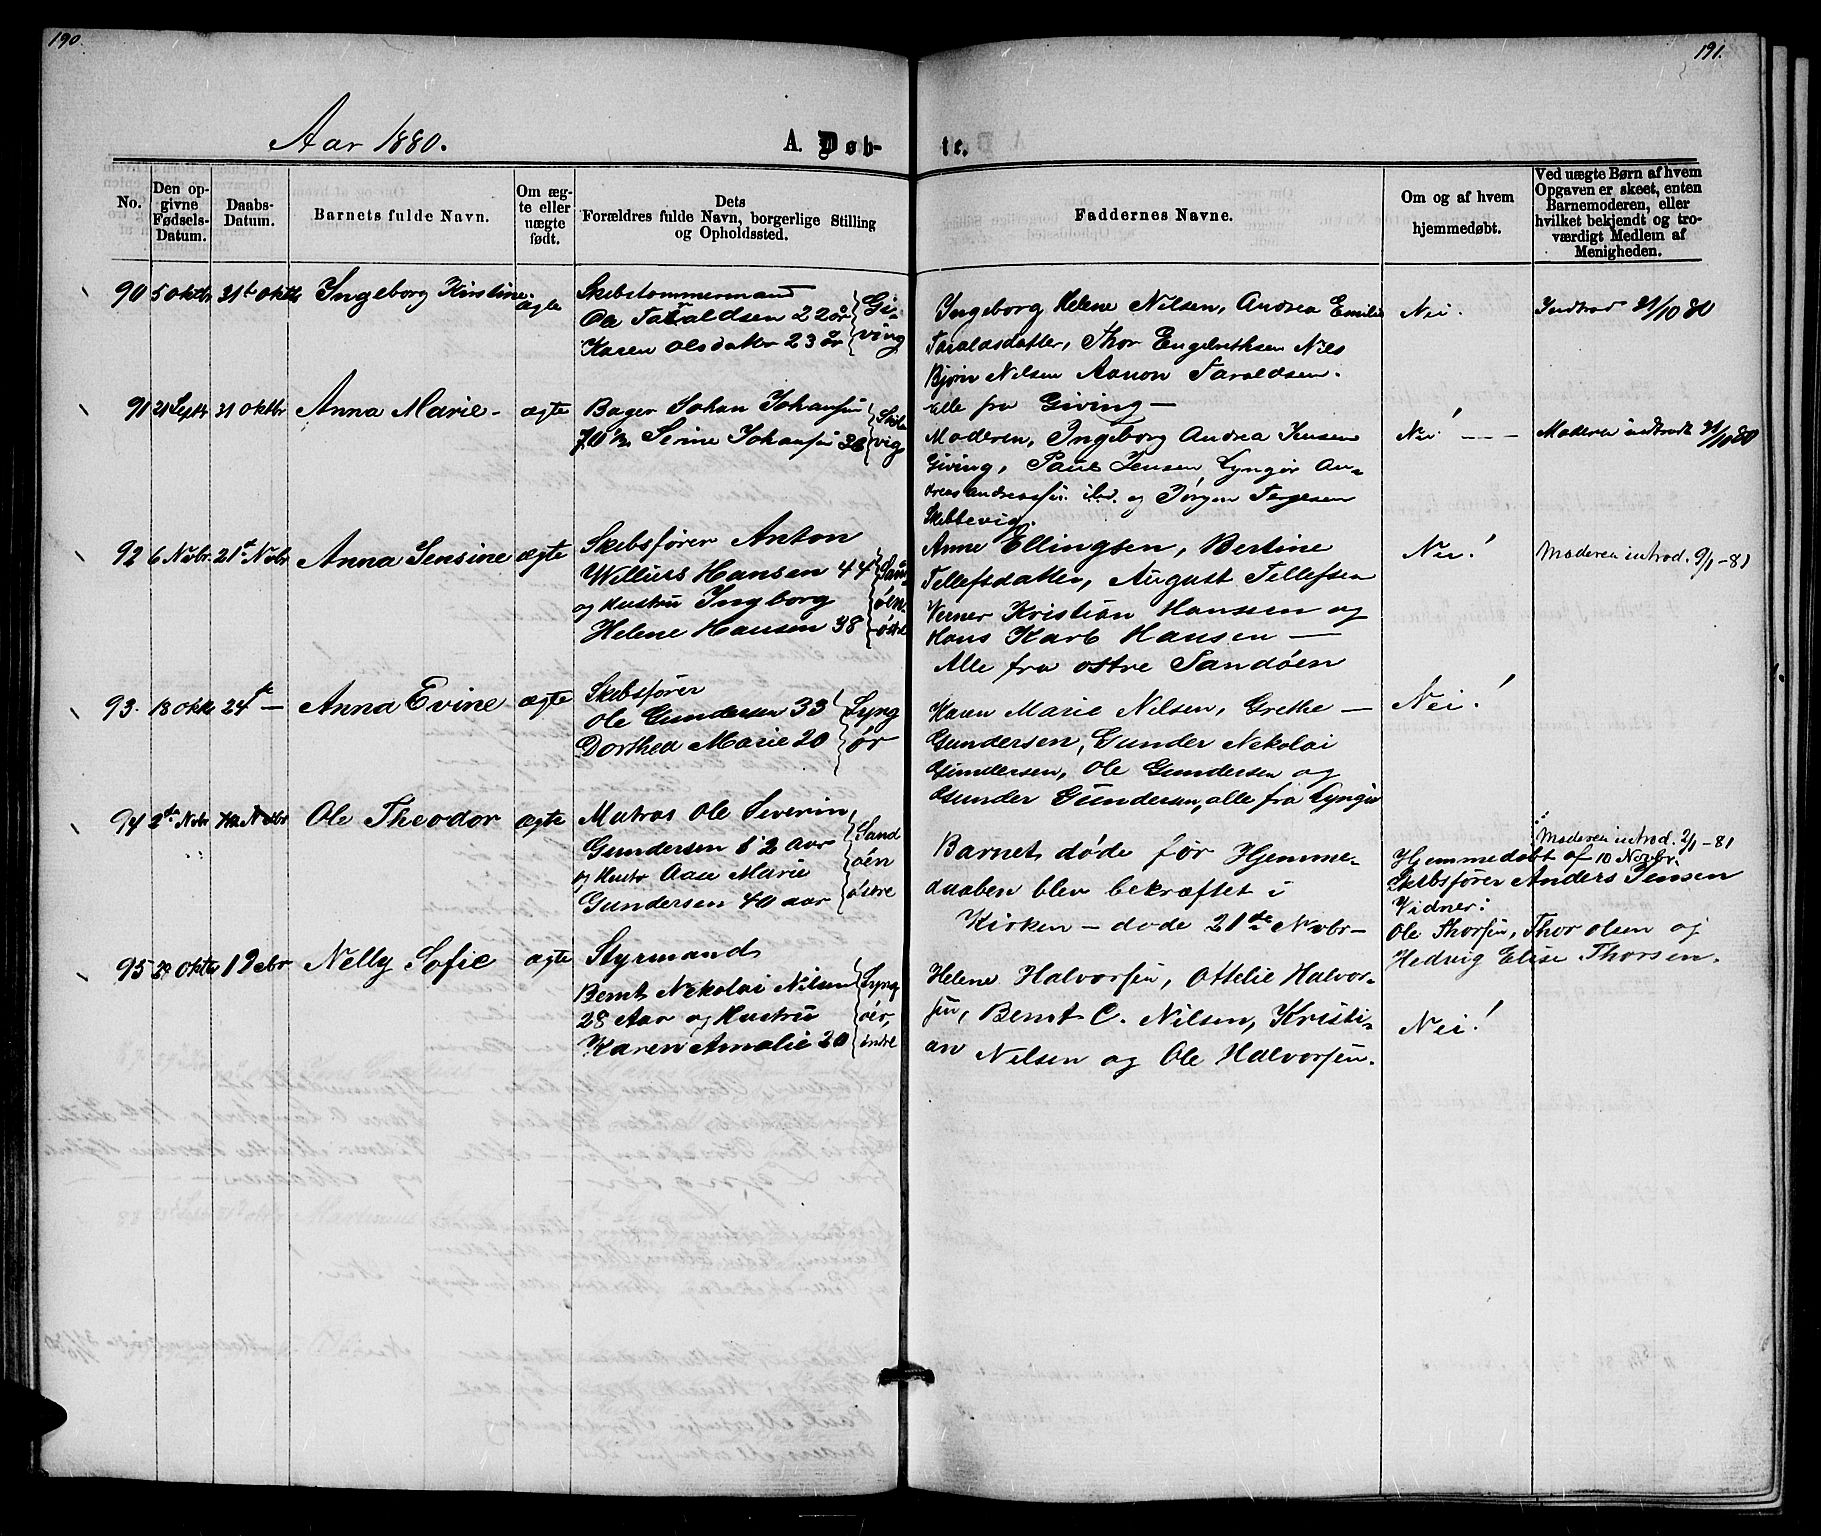 190.
191.
Aar 1880.
A. Døb-
te.
No.
Den op-
givne
Fødsels-
Datum.
Daabs-
Datum.
Barnets fulde Navn.
Om æg-
te eller
uægte
født.
Dets
Forældres fulde Navn, borgerlige Stilling
og Opholdssted.
Faddernes Navne.
Om og af hvem
hjemmedøbt.
Ved uægte Børn af hvem
Opgaven er skeet, enten
Barnemoderen, eller
hvilket bekjendt og tro-
værdigt Medlem af
Menigheden.
90 5 Oktbr 31te Oktb Ingeborg Kirstine. ægte
Skibstømmermand
Ole Taraldsen 22 år
Karen Olsdatter 23 år
Gi-
ving
Ingeborg Helene Nilsen, Andrea Emilie
Taraldsdatter, Thor Engebrethsen Nils
Bjørn Nilsen Aanon Taraldsen.
Alle fra Giving —
Nei.
Indtrad 31/10 80
91 21 Septr 31 Oktbr Anna Marie - ægte
Bager Johan Johansen
Serine Johansen
vig
Moderen, Ingeborg Andrea Jensen
Giving, Paul Jensen Lyngør An-
dreas Andreassen ibd. og Jørgen Terjesen
Skibbevig.
Nei! — —
Moderen indtrådt 31/10 80
92 6 Novbr. 21de Novbr Anna Jensine ægte
Skibsfører Anton
Willius Hansen 44
og Hustru Ingborg
Helene Hansen 38
Sand-
øen
østre
Anne Ellingsen, Bertine
Tellefsdatter, August Tellefsen
Verner Kristian Hanssen og
Hans Karl Hansen —
Alle fra østre Sandøen
Nei!
Moderen introd. 9/1 - 81
93. 18 Okt 24de — Anna Evine ægte
Skibsfører
Ole Gundersen 33
Dorthea Marie 20
Lyng
ør
Karen Marie Nilsen, Grethe —
Gundersen, Gunder Nekolai
Gundersen, Ole Gundersen og
Gunder Gundersen, alle fra Lyngør
Nei!
94 2den Novbr Novbr Ole Theodor ægte
Matros Ole Severin
Gundersen 52 Aar
og Hustr Aase Marie
Gundersen 40 aar
Sand
øen
østre
Barnet døde før Hjemme-
daaben blev bekræftet i
Kirken — døde 21de Novbr —
Moderen introd. 2/1 - 81
Hjemmedøbt af 10 Novbr.
Skibsfører Anders Jensen
Vidner:
Ole Thorsen, Thor Olsen og
Hedvig Elise Thorsen.
95 29 Oktbr 19 Nelly Sofie ægte
Styrmand
Bernt Nekolai Nilsen
28 Aar og Hustru
Karen Amalie 20
Lyng
øer,
indre
Helene Halvorsen, Ottelie Halvor-
sen, Bernt C. Nilsen, Kristi-
an Nilsen og Ole Halvorsen.
Nei!